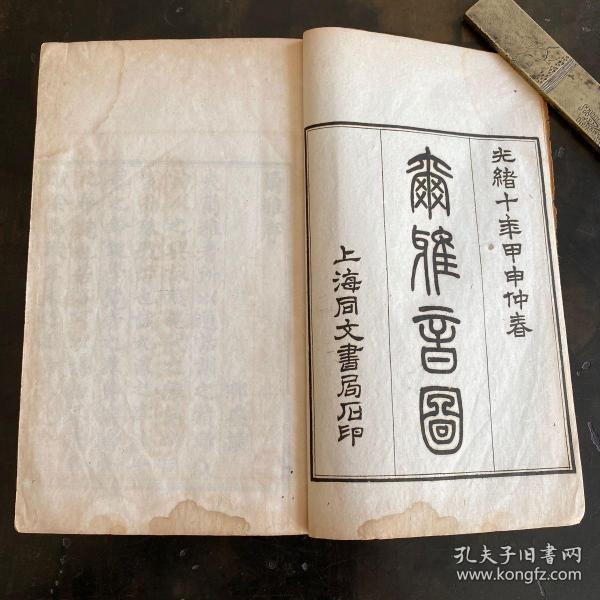 光緒十年甲申仲春
爾雅音圖
上海同文書局石印
孔夫子旧书网
www.kongfz.com